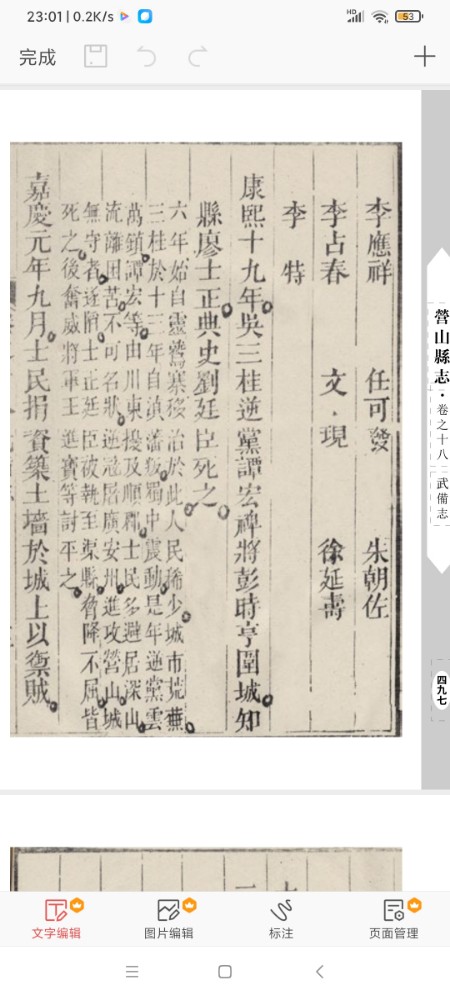 23:01 | 0.2K/s
HD
53
完成
李應祥 任可發 朱朝佐
李占春 文現 徐延壽
李特
康熙十九年吳三桂逆黨譚宏禆將彭時亨圍城知
縣廖士正典史劉廷臣死之
六年始自靈鷲寨移治於此人民稀少城市荒蕪
三桂於十三年自滇藩叛蜀中震動是年逆黨雲
萬鎮譚宏等由川東擾及順郡士民多避居深山
流離困苦不可名狀逆冦屠廣安州進攻營山城
無守者遂陷士正廷臣被執至渠縣脅降不屈皆
死之後奮威將軍王進寶等討平之
嘉慶元年九月士民捐資築土墻於城上以禦賊
營山縣志·卷之十八 武備志
四九七
文字编辑
图片编辑
标注
页面管理